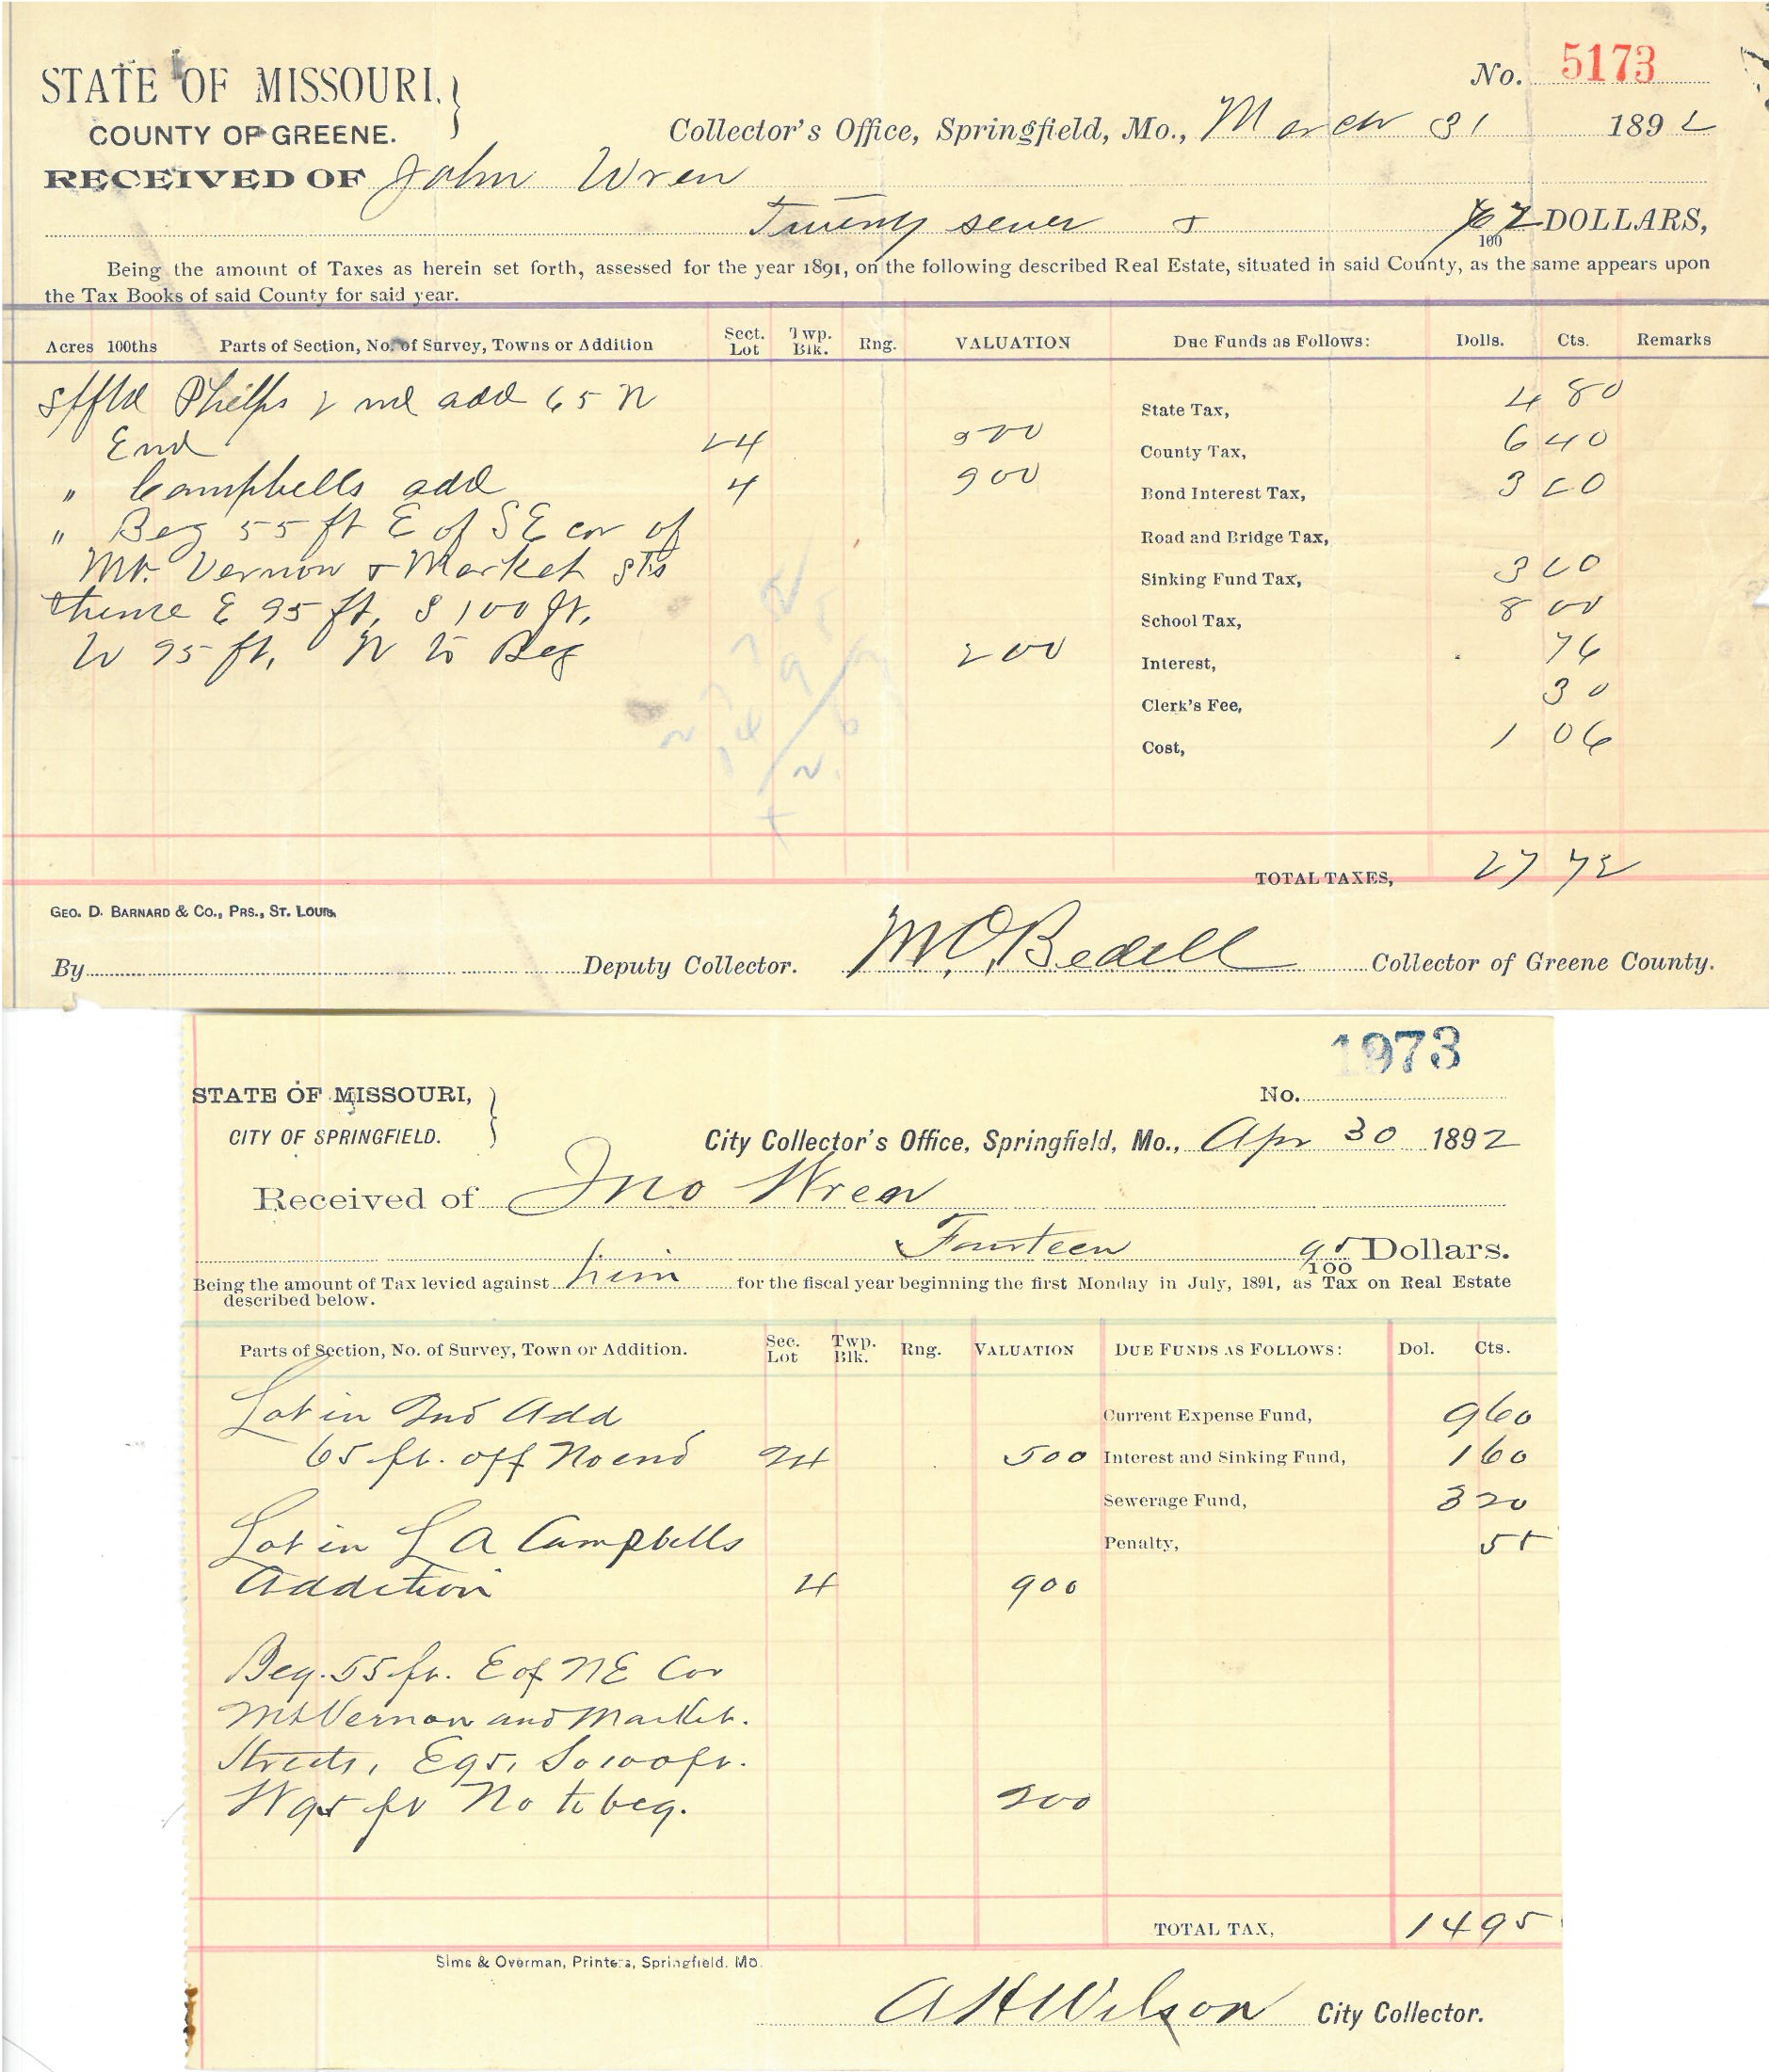 No. 5173
STATE OF MISSOURI,
COUNTY OF GREENE.
Collector's Office, Springfield, Mo., March 31 1892
RECEIVED OF John Wren
Twenty seven & 72/100 DOLLARS,
Being the amount of Taxes as herein set forth, assessed for the year 1891, on the following described Real Estate, situated in said County, as the same appears upon
the Tax Books of said County for said year.
Acres 100ths Parts of Section, No. of Survey, Towns or Addition Sect. Lot Twp. Blk. Rng. VALUATION Due Funds as Follows: Dolls. Cts. Remarks
Spfld Phelps 2nd add 65 N State Tax, 4 80
End 24 500 County Tax, 6 40
" Campbells add 4 900 Bond Interest Tax, 3 20
" Beg 55 ft E of SE cor of Road and Bridge Tax,
Mt. Vernon & Market Sts Sinking Fund Tax, 3 20
thence E 95 ft, S 100 ft, School Tax, 8 00
W 95 ft, N to Beg 200 Interest, 76
Clerk's Fee, 30
Cost, 1 06
TOTAL TAXES, 27 72
GEO. D. BARNARD & CO., PRS., ST. LOUIS.
By Deputy Collector. M.O. Bedell Collector of Greene County.
1973
STATE OF MISSOURI, No.
CITY OF SPRINGFIELD.
City Collector's Office, Springfield, Mo., Apr 30 1892
Received of Jno Wren
Fourteen 95/100 Dollars.
Being the amount of Tax levied against him for the fiscal year beginning the first Monday in July, 1891, as Tax on Real Estate
described below.
Parts of Section, No. of Survey, Town or Addition. Sec. Lot Twp. Blk. Rng. VALUATION DUE FUNDS AS FOLLOWS: Dol. Cts.
Lot in 2nd Add Current Expense Fund, 9 60
65 ft. off No end 24 500 Interest and Sinking Fund, 1 60
Sewerage Fund, 3 20
Lot in L A Campbells Penalty, 55
Addition 4 900
Beg. 55 ft. E of NE Cor
Mt Vernon and Market.
Streets, E 95, So 100 ft.
W 95 ft No to beg. 200
TOTAL TAX, 14 95
Sims & Overman, Printers, Springfield. Mo.
A H Wilson City Collector.